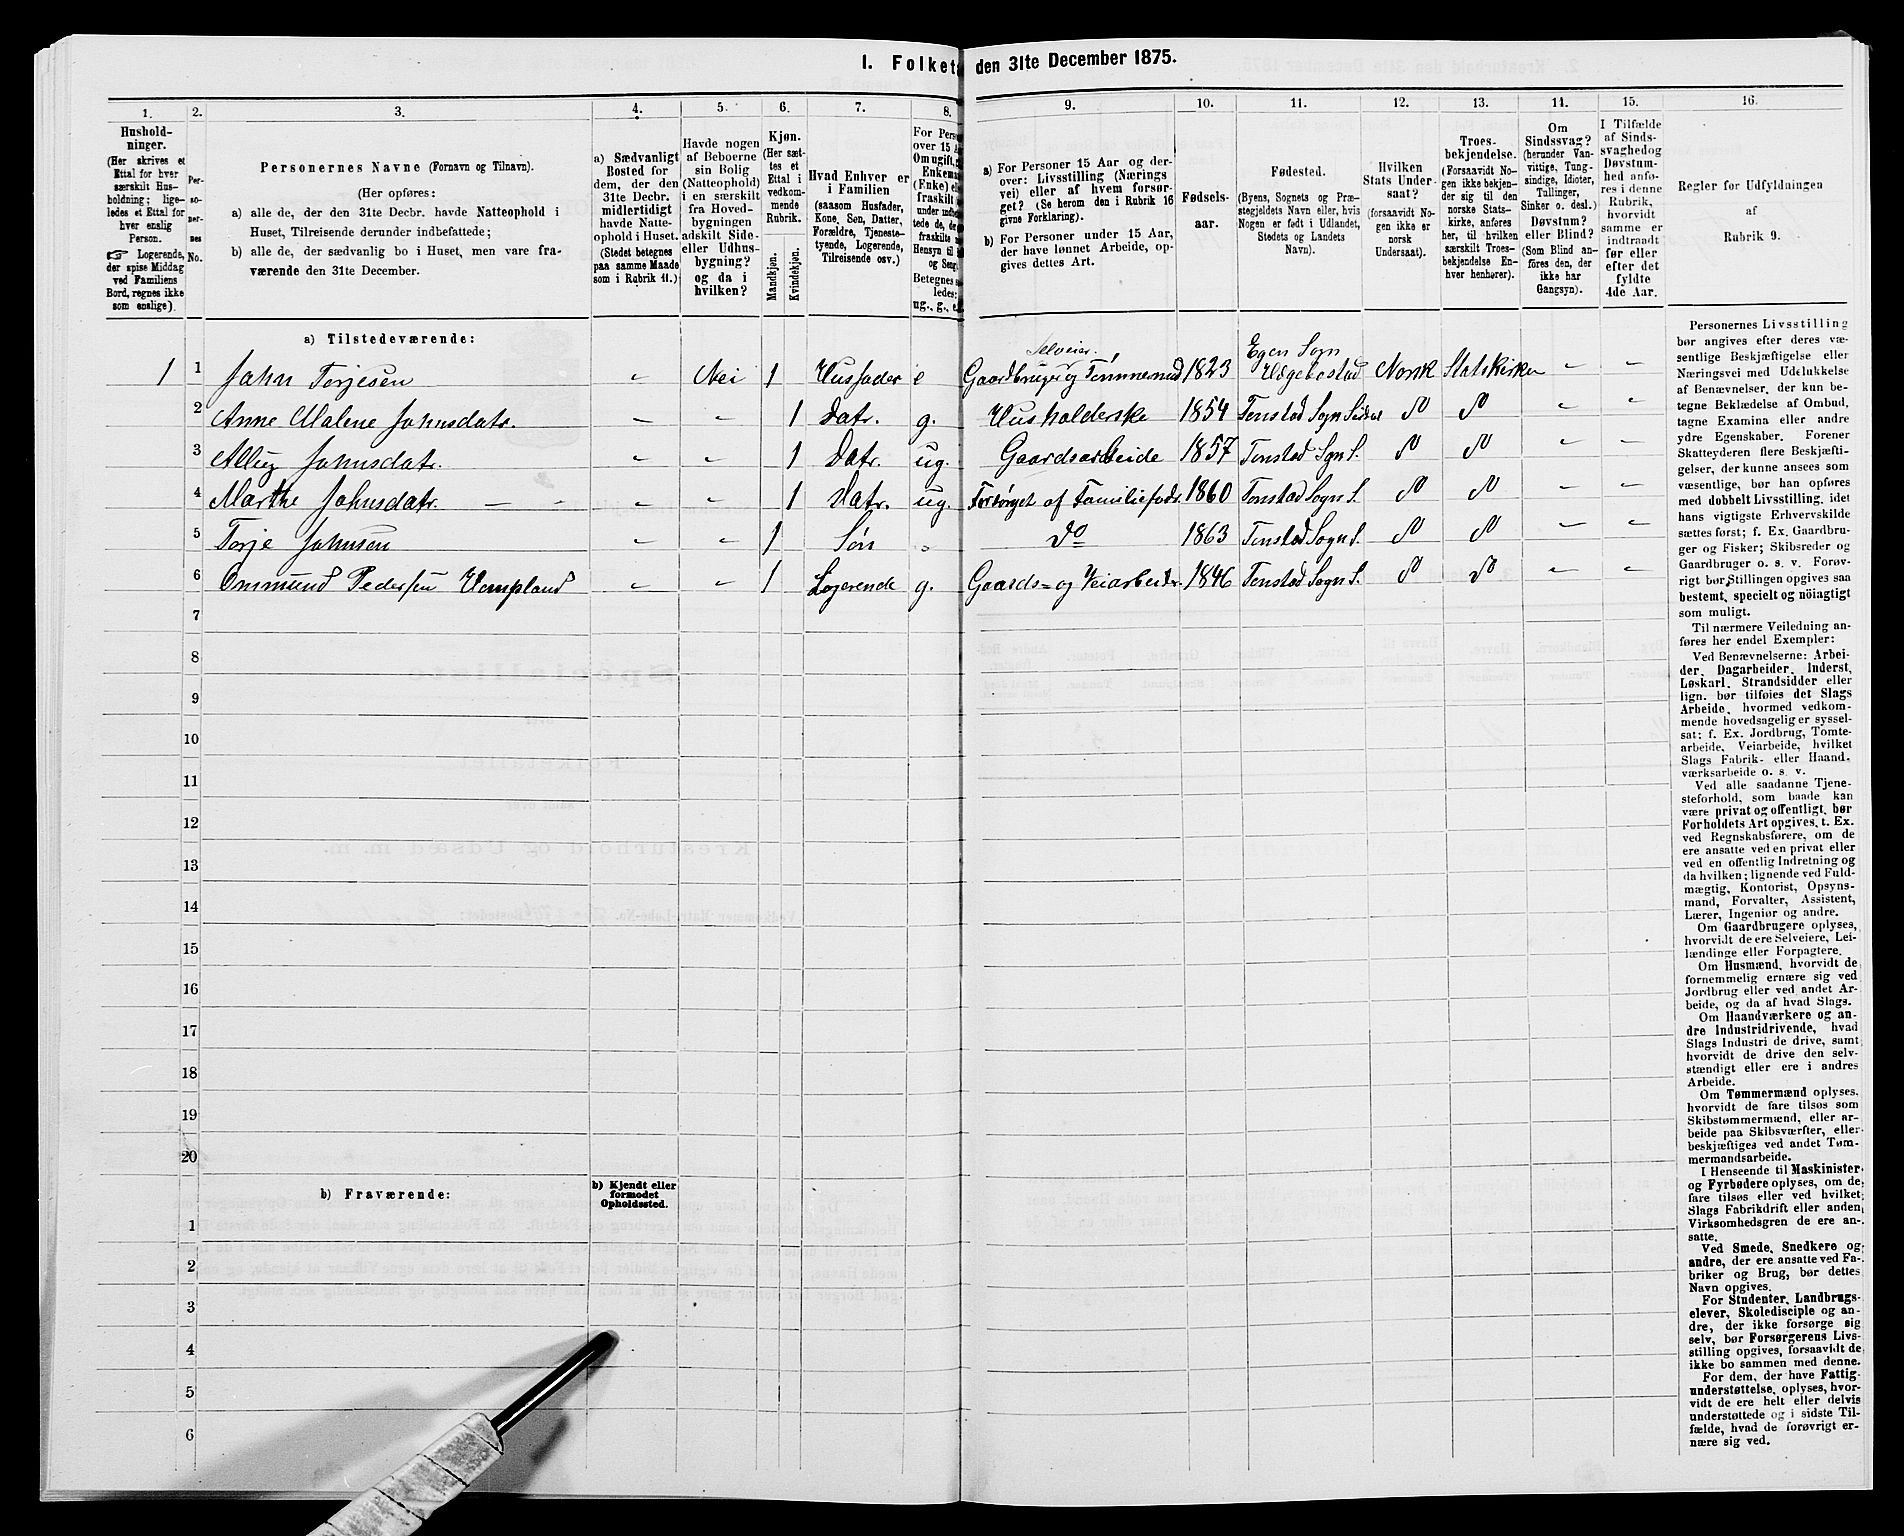 I. Folket
den 31te December 1875.
1.
2.
3.
4.
5.
6.
7.
8.
9.
10.
11.
12.
13.
14.
15.
16.
Hushold-
ninger.
(Her skrives et
Ettal for hver
særskilt Hus-
holdning; lige-
ledes et Ettal for
hver enslig
Person.
☞ Logerende,
der spise Middag
ved Familiens
Bord, regnes ikke
som enslige).
Per-
so-
ner-
nes
No.
Personernes Navne (Fornavn og Tilnavn).
(Her opføres:
a) alle de, der den 31te Decbr. havde Natteophold i
Huset, Tilreisende derunder indbefattede;
b) alle de, der sædvanlig bo i Huset, men vare fra-
værende den 31te December.
a) Sædvanligt
Bosted for
dem, der den
31te Decbr.
midlertidigt
havde Natte-
ophold i Huset.
(Stedet betegnes
paa samme Maade
som i Rubrik 11.)
Havde nogen
af Beboerne
sin Bolig
(Natteophold)
i en særskilt
fra Hoved-
bygningen
adskilt Side-
eller Udhus-
bygning?
og da i
hvilken?
Kjøn.
(Her sæt-
tes et
Ettal i
vedkom-
mende
Rubrik.
Mandkjøn.
Kvindekjøn.
Hvad Enhver er
i Familien
(saasom Husfader,
Kone, Søn, Datter,
Forældre, Tjeneste-
tyende, Logerende,
Tilreisende osv.)
For Pers
over 15 A
Om ugift,
Enkema
(Enke) el
fraskilt
under indb
tede de, d
fraskilte
Hensyn til
og Seng
Betegnes s
ledes:
ug., g., e.
a) For Personer 15 Aar og der-
over: Livsstilling (Nærings
vei) eller af hvem forsør-
get? (Se herom den i Rubrik 16
givne Forklaring).
b) For Personer under 15 Aar,
der have lønnet Arbeide, op-
gives dettes Art.
Fødsels-
aar.
Fødested.
(Byens, Sognets og Præ-
stegjeldets Navn eller, hvis
Nogen er født i Udlandet,
Stedets og Landets
Navn).
Hvilken
Stats Under-
saat?
(forsaavidt No-
gen ikke er
norsk
Undersaat).
Troes-
bekjendelse.
(Forsaavidt No-
gen ikke bekjen-
der sig til den
norske Stats-
kirke, anføres
her, til hvilken
særskilt Troes-
bekjendelse En-
hver henhører).
Om
Sindssvag?
(herunder Van-
vittige, Tung-
sindige, Idioter,
Tullinger,
Sinker o. desl.)
Døvstum?
eller Blind?
(Som Blind an-
føres den, der
ikke har
Gangsyn).
I Tilfælde
af Sinds-
svaghed og
Døvstum-
hed anfø-
res i denne
Rubrik,
hvorvidt
samme er
indtraadt
før eller
efter det
fyldte
4de Aar.
Regler for Udfyldningen
af
Rubrik 9.
a) Tilstedeværende:
1 1 John Torjesen Nei 1 Husfader e Selveier. Gaardbruger og Tømmermd 1823 Egen Sogn Helgebostad Norsk Statskirken
2 Anne Malene Johnsdatr. 1 Datr. g. Husholderske 1854 Tonstad Sogn Sirdal do do
3 Johnsdatr. 1 Datr. ug. Gaardsarbeide 1857 Tonstad Sgn S. do do
4 Marthe Johnsdatr. 1 Datr. ug. Forsørget af Familiefadr. 1860 Tonstad Sogn S. do do
5 Torje Johnsen 1 Søn do 1863 Tonstad Sogn S. do do
6 Ommund Pedersen Hompland 1 Logerende g. Gaards= og Veiarbeider. 1846 Tonstad Sogn S. do do
7
8
9
10
11
12
13
14
15
16
17
18
19
20
b) Fraværende:
b) Kjendt eller
formodet
Opholdssted.
1
2
3
4
5
6
Personernes Livsstilling
bør angives efter deres væ-
sentlige Beskjæftigelse eller
Næringsvei med Udelukkelse
af Benævnelser, der kun be-
tegne Beklædelse af Ombud,
tagne Examina eller andre
ydre Egenskaber. Forener
Skatteyderen flere Beskjæfti-
gelser, der kunne ansees som
væsentlige, bør han opføres
med dobbelt Livsstilling, idet
hans vigtigste Erhvervskilde
sættes først; f. Ex. Gaardbru-
ger og Fisker; Skibsreder og
Gaardbruger o. s. v. Forøv-
rigt bør Stillingen opgives saa
bestemt, specielt og nöiagtigt
som muligt.
Til nærmere Veiledning an-
føres her endel Exempler:
Ved Benævnelserne: Arbei-
der, Dagarbeider, Inderst,
Løskarl, Strandsidder eller
lign. bør tilføies det Slags
Arbeide, hvormed vedkom-
mende hovedsagelig er syssel-
sat; f. Ex. Jordbrug, Tomte-
arbeide, Veiarbeide, hvilket
Slags Fabrik- eller Haand-
værksarbeide o. s. v.
Ved alle saadanne Tjene-
steforhold, som baade kan
være privat og offentligt, bør
Forholdets Art opgives, t. Ex.
ved Regnskabsførere, om de
ere ansatte ved en privat eller
ved en offentlig Indretning og
da hvilken; lignende ved Fuld-
mægtig, Kontorist, Opsyns-
mand, Forvalter, Assistent,
Lærer, Ingeniør og andre.
Om Gaardbrugere oplyses,
hvorvidt de ere Selveiere, Lei-
lændinge eller Forpagtere.
Om Husmænd, hvorvidt de
fornemmelig ernære sig ved
Jordbrug eller ved andet Ar-
beide, og da af hvad Slags.
Om Haandværkere og an-
dre Industridrivende, hvad
Slags Industri de drive, samt
hvorvidt de drive den selv-
stændigt eller ere i andres
Arbeide.
Om Tømmermænd oplyses,
hvorvidt de fare tilsøs som
Skibstømmermænd, eller ar-
beide paa Skibsværfter, eller
beskjæftiges ved andet Tøm-
mermandsarbeide.
I Henseende til Maskinister
og Fyrbødere oplyses, om de
fare tilsøs eller ved hvilket
Slags Fabrikdrift eller anden
Virksomhedsgren de ere an-
satte.
Ved Smede, Snedkere og
andre, der ere ansatte ved Fa-
briker og Brug, bør dettes
Navn opgives.
For Studenter, Landbrugs-
elever, Skoledisciple og an-
dre, der ikke forsørge sig
selv, bør Forsørgerens Livs-
stilling opgives, forsaavidt de
ikke bo sammen med denne.
For dem, der have Fattig-
understøttelse, oplyses, hvor-
vidt de ere helt eller delvis
understøttede og i sidste Til-
fælde, hvad de forøvrigt er-
nære sig ved.